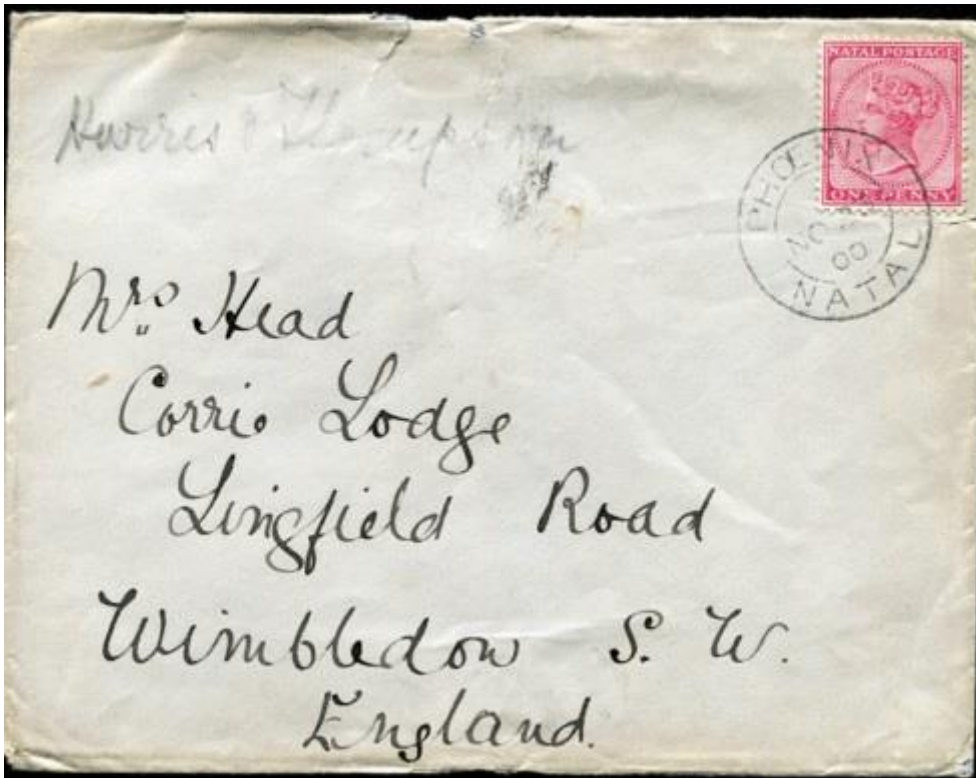 NATAL POSTAGE
ONE PENNY
PHOENIX
NO
00
NATAL
Harris & Thompson
Mrs Head
Corrie Lodge
Lingfield Road
Wimbledon S. W.
England.